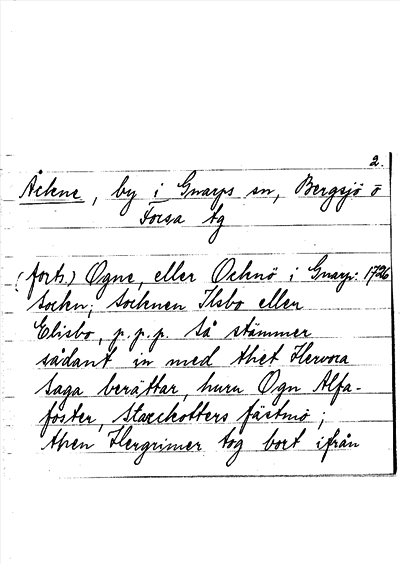 2.
Åckne, by i Gnarps sn, Bergsjö o
Forsa tg
(forts.) Ogne, eller Ocknö i Gnarp: 1726
Sockn; Socknen Ilsbo eller
Elisbo, p.p.p. Så stämmer
sådant in med thet Hervora
Saga berättar, huru Ogn Alfa-
foster, Starchotters fästmö;
then Hergrimer tog bort ifrån